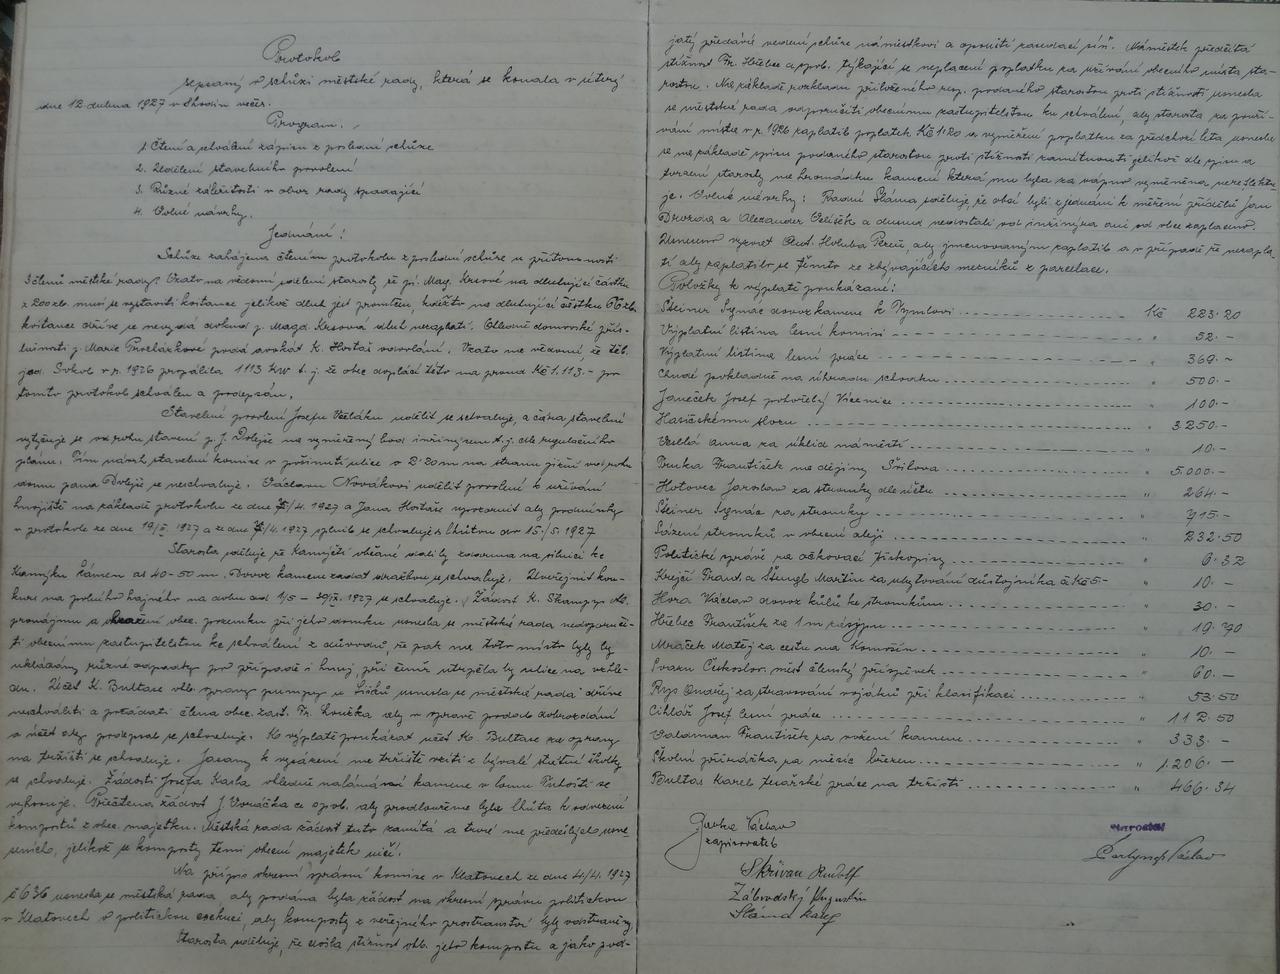 Protokol
sepsaný o schůzi městské rady, která se konala v úterý
dne 12 dubna 1927 v 8 hodin večer.
Program.
1. Čtení a schválení zápisu z poslední schůze
2. Udělení stavebního povolení
3. Různé záležitosti v obor rady spadající
4. Volné návrhy.
Jednání:
Schůze zahájena čtením protokolu z poslední schůze u přítomnosti
členů městské rady. Vzato na vědomí sdělení starosty, že pí. Mag. Krsové na dlužující částku
z 200 zl. musí se vystaviti kvitance jelikož dluh jest promlčen, kdežto na dlužující částku 66 zl.
kvitance dříve se nevydá dokud p. Magd. Krsová dluh nezaplatí. Ohledně domovské přís-
lušnosti p. Marie podá advokát K. Hostaš odvolání. Vzato na vědomí, že těl.
jed. Sokol v r. 1926 propálila 1113 KW t. j. že obec doplácí této na proud Kč 1.113.- po
tomto protokol schválen a podepsán.
Stavební povolení Josefu udělit se schvaluje, a čára stavební
vytyčuje se od rohu stavení p. J. Dolejše na vyměřený bod inžinýrem t. j. dle regulačního
plánu. Tím návrh stavební komise v posunutí ulice o 2.20 m na stranu jižní od rohu
domu pana Dolejše se neschvaluje. Václavu Novákovi udělit povolení k užívání
hnojiště na základě protokolu ze dne /4. 1927 a Jana Hostaše vyrozumět aby podmínky
v protokole ze dne 19/ 1927 a ze dne /4. 1927 splnil se schvaluje s lhůtou do 15./5. 1927
Starosta sděluje že Kamýčtí občané vozily zdarma na silnici ke
Kamýku kámen asi 40-50 m. Dovoz kamene zadat dražbou se schvaluje. Uveřejnit kon-
kurs na polního hajného na dobu od 1/5 - 1927 se schvaluje. Žádost K. Skampy o
pronájmu a obec. pozemku při jeho domku usnesla se městská rada nedoporuči-
ti obecnímu zastupitelstvu ke schválení z důvodů, že pak na toto místo byly by
ukládány různé odpadky po případě i hnuj, při čemž utrpěla by ulice na vzhle-
du. Účet K. Bultase ohl. opravy pumpy u usnesla se městská rada dříve
neschváliti a požádati člena obec. zast. Fr. Loučka aby v opravě podal dobrozdání
a účet aby podepsal se schvaluje. Ku výplatě poukázat účet K. Bultase za opravy
na tržišti se schvaluje. Jasany k vysázení na tržiště vzíti z bývalé školky
se schvaluje. Žádosti Josefa Karla ohledně nalámání kamene v lomu se
vyhovuje. Přečtena žádost J. Vonáčka a spol. aby prodloužena byla lhůta k odvezení
kompostů z obec. majetku. Městská rada žádost tuto zamítá a trvá na předešlých usne
seních, jelikož se komposty těmi obecní majetek ničí.
Na přípis okresní správní komise v Klatovech ze dne 4/4 1927
č 636 usnesla se městská rada, aby podána byla žádost na okresní správu politickou
v Klatovech o politickou exekuci, aby komposty z veřejného prostranství byly odstraněny.
Starosta sděluje, že došla stížnost ohl. jeho kompostu a jako pod-
jatý předává vedení schůze náměstkovi a opouští zasedací síň. Náměstek předčítá
stížnost Fr. Hřebce a spol. týkající se neplacení poplatku za užívání obecního místa sta-
rostou. Na základě rozkladu přiloženého resp. podaného starostou proti stížnosti usnesla
se městská rada odporučiti obecnímu zastupitelstvu ku schválení, aby starosta za použí-
vání místa v r. 1926 zaplatil poplatek Kč 11.20 a vyměření poplatku za předchozí léta usnesla
se na základě spisu podaného starostou proti stížnosti zamítnouti jelikož dle spisu a
tvrzení starosty na hromádku kamení která mu byla za vápno vyměněna nereflektu-
je. Volné návrhy: Radní Sláma sděluje, že obcí byli zjednáni k měření přídělů Jan
Drozda a Alexander a dosud nedostali od inžinýra ani od obce zaplaceno.
Usneseno vyzvat Ant. Holuba aby jmenovaným zaplatil a v případě že nezapla-
tí aby zaplatilo se těmto ze zbývajícího z parcelace.
Položky k výplatě poukázané:
Steiner Ignác dovoz kamene k Výmlovi --- Kč 223.20
Výplatní listina lesní komisi --- " 52.-
Výplatní listina lesní práce --- " 369.-
Chudé pokladně na úhradu schodku --- " 500.-
Janeček Josef pohořelý Vícenice --- " 100.-
Hasičskému sboru --- " 3250.-
Veselá Anna za úklid náměstí --- " 10.-
Pruka František na dějiny Švihova --- " 5.000.-
Hotovec Jaroslav za stromky dle účtu --- " 264.-
Steiner Ignác za stromky --- " 915.-
Sázení stromků v obecní aleji --- " 232.50
Politické správě za očkovací tiskopisy --- " 6.32
Krejčí Frant. a Martin za ubytování důstojníka á Kč 5- " 10.-
Hora Václav dovoz kůlů ke stromkům --- " 30.-
Hřebec František za 1 m --- " 19.90
Mráček Matěj za cestu na --- " 10.-
Svazu Českoslov. měst členský příspěvek --- " 60.-
Rys Ondřej za stravování vojáků při klasifikaci --- " 53.50
Cihlář Josef lesní práce --- " 112.50
Valdman František za svážení kamene --- " 333.-
Školní přirážka za měsíc březen --- " 1.206.-
Bultas Karel tesařské práce na tržišti --- " 466.34
Václav
zapisovatel
starosta:
Václav
Skřivan Rudolf
Zábrodský Augustin
Sláma Karel